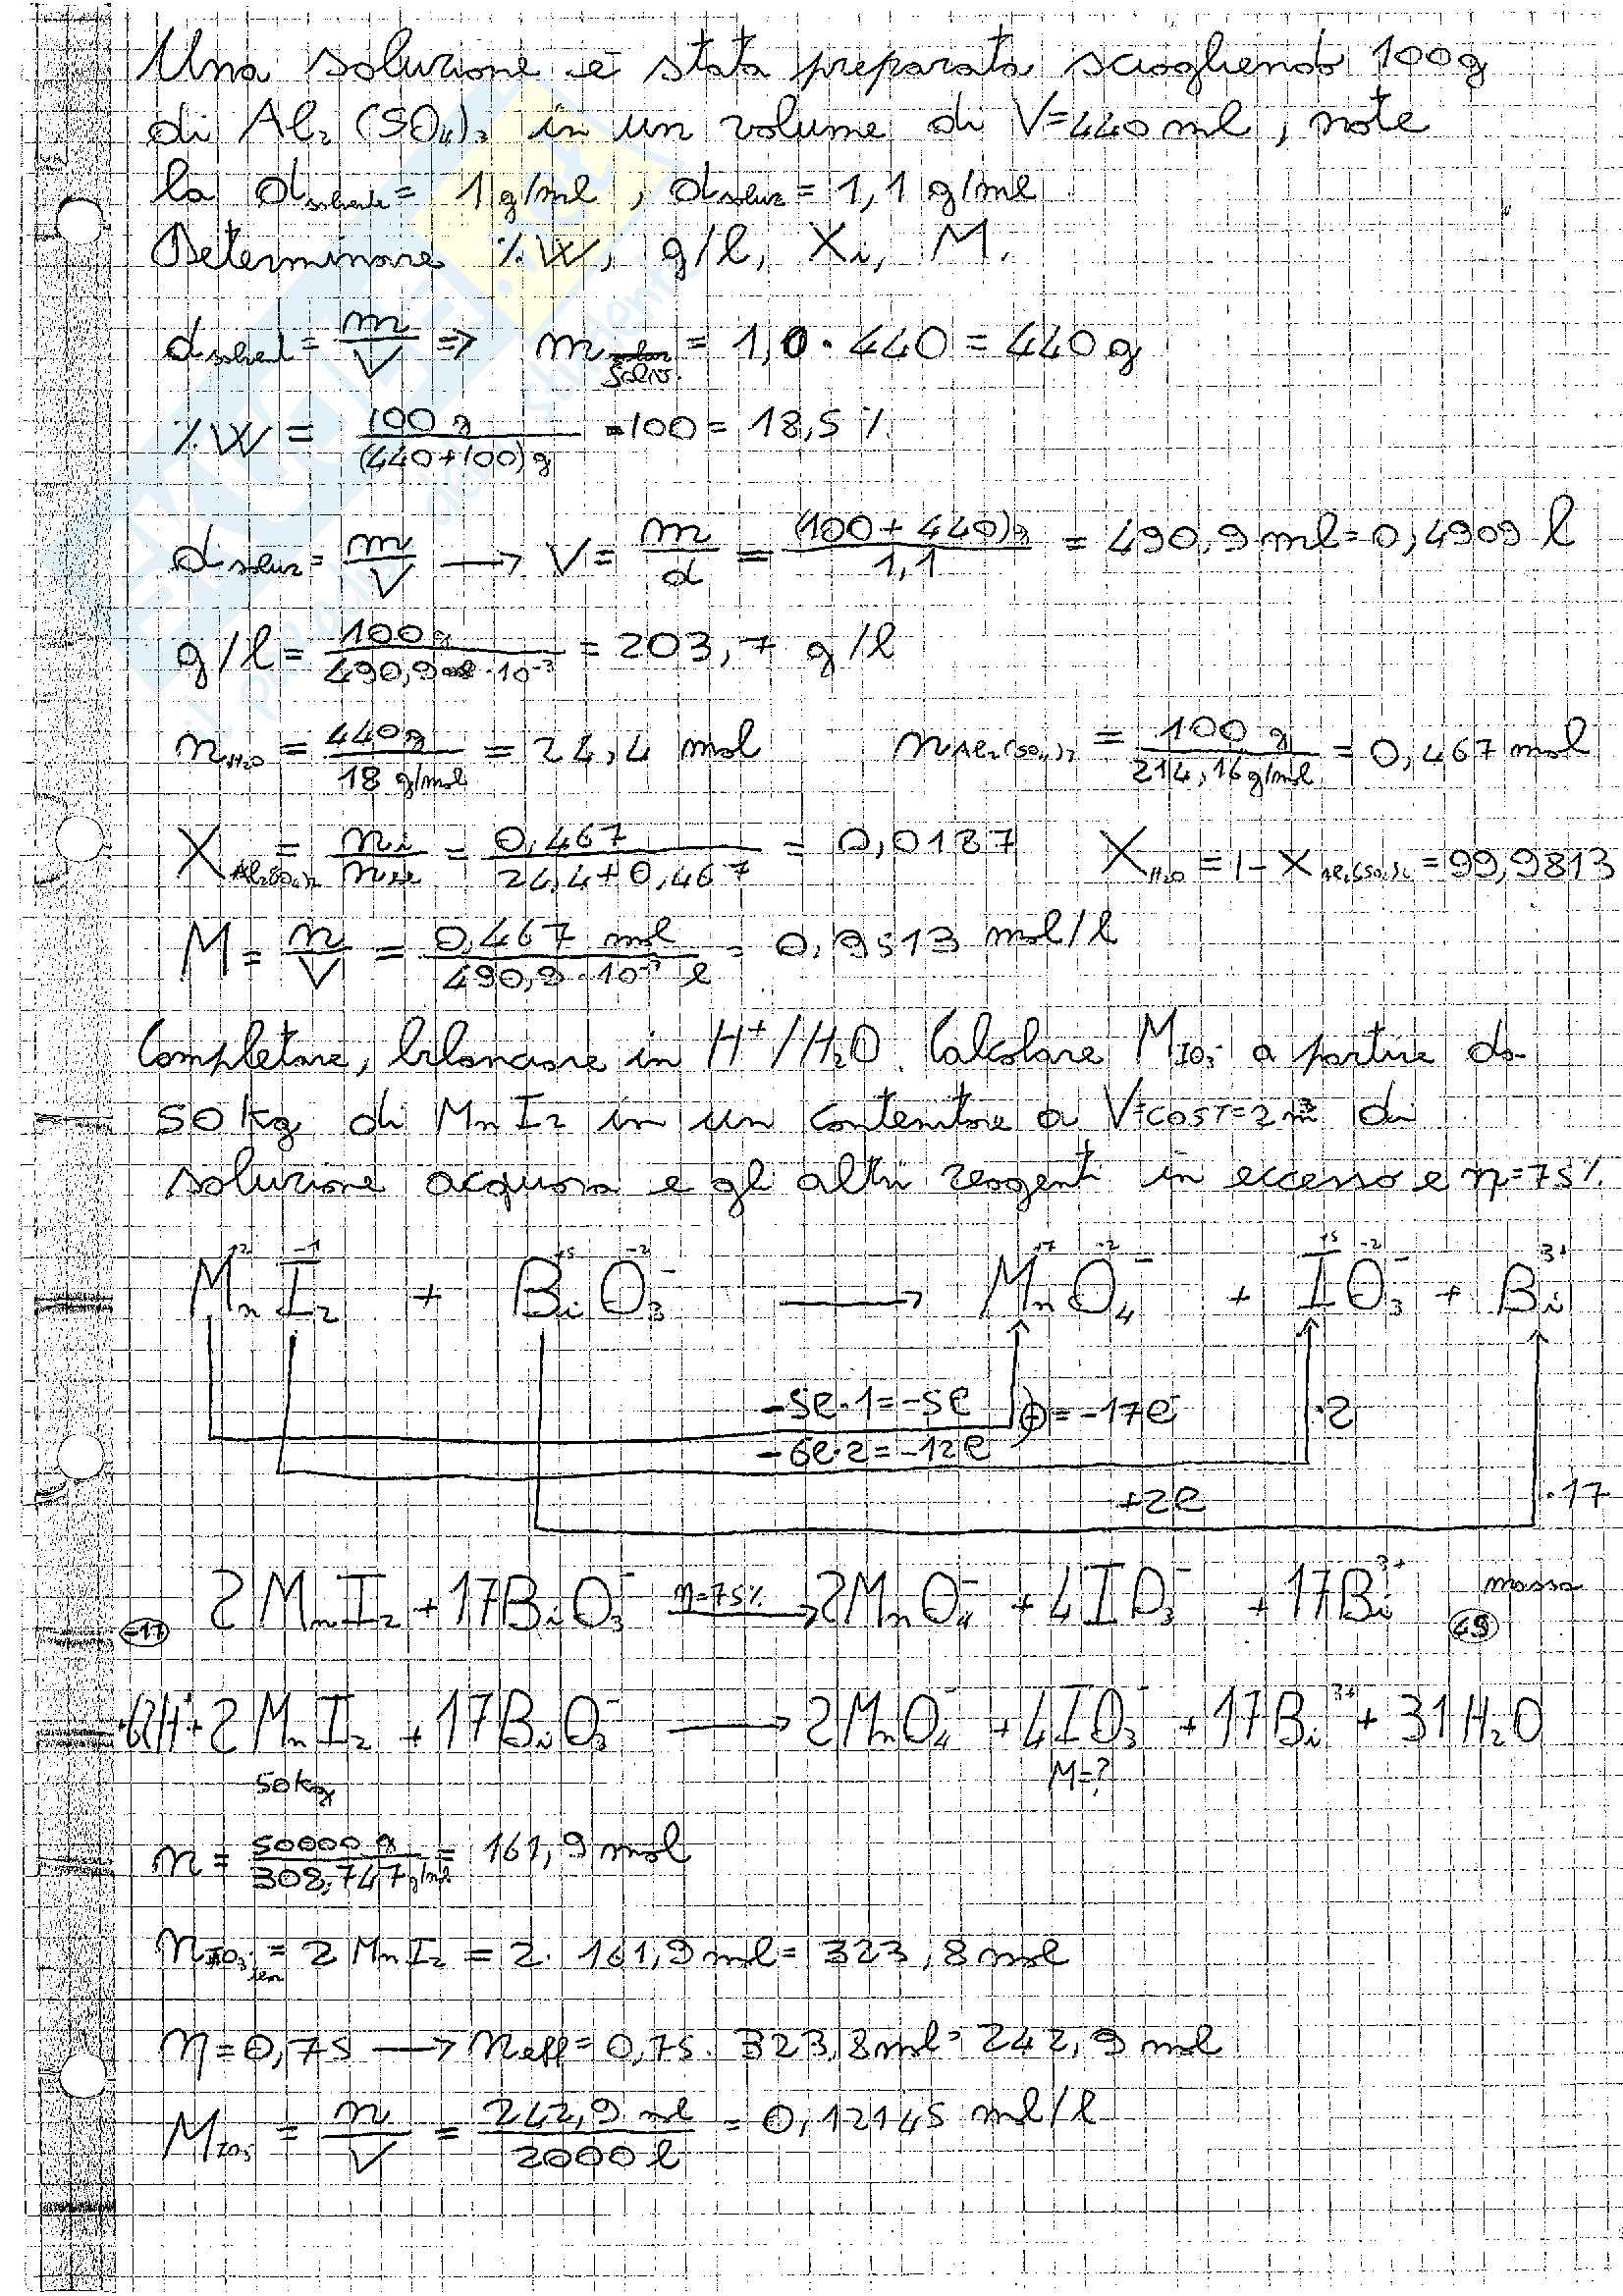 Una soluzione è stata preparata sciogliendo 100g
di Al₂(SO₄)₃ in un volume di V=440 ml, note
la d solvente = 1 g/ml, d soluz = 1,1 g/ml
Determinare %W, g/l, Xi, M.
d solvent = m/V => m solv. = 1,0 · 440 = 440 g
%W = 100 g/(440+100) g · 100 = 18,5 %
d soluz = m/V → V = m/d = (100 + 440) g/1,1 = 490,9 ml = 0,4909 l
g/l = 100 g/490,9 · 10⁻³ = 203,7 g/l
n H₂O = 440 g/18 g/mol = 24,4 mol n Al₂(SO₄)₃ = 100 g/214,16 g/mol = 0,467 mol
X Al₂(SO₄)₂ = ni/n = 0,467/24,4+0,467 = 0,0187 X H₂O = 1 - X Al₂(SO₄)₂ = 99,9813
M = n/V = 0,467 mol/490,9 · 10⁻³ l = 0,9513 mol/l
Completare, bilanciare in H⁺/H₂O. Calcolare M IO₃⁻ a partire da
50 kg di MnI₂ in un contenitore a V=COST=2 m³ di
soluzione acquosa e gli altri reagenti in eccesso e η=75%.
+2 -1 +5 -2 +7 -2 +5 -2
MnI₂ + BiO₃⁻ → MnO₄⁻ + IO₃⁻ + Bi³⁺
-5e·1=-5e
⊕=-17e⁻ ·2
-6e·2=-12e
+2e ·17
2MnI₂ + 17BiO₃⁻ η=75% → 2MnO₄⁻ + 4IO₃⁻ + 17Bi³⁺ massa
-17 49
62H⁺ + 2MnI₂ + 17BiO₃⁻ → 2MnO₄⁻ + 4IO₃⁻ + 17Bi³⁺ + 31H₂O
50kg M=?
n = 50000 g/308,747 g/mol = 161,9 mol
n IO₃ = 2 MnI₂ = 2 · 161,9 mol = 323,8 mol
η=0,75 → n eff = 0,75 · 323,8 mol = 242,9 mol
M IO₃ = n/V = 242,9 mol/2000 l = 0,12145 mol/l